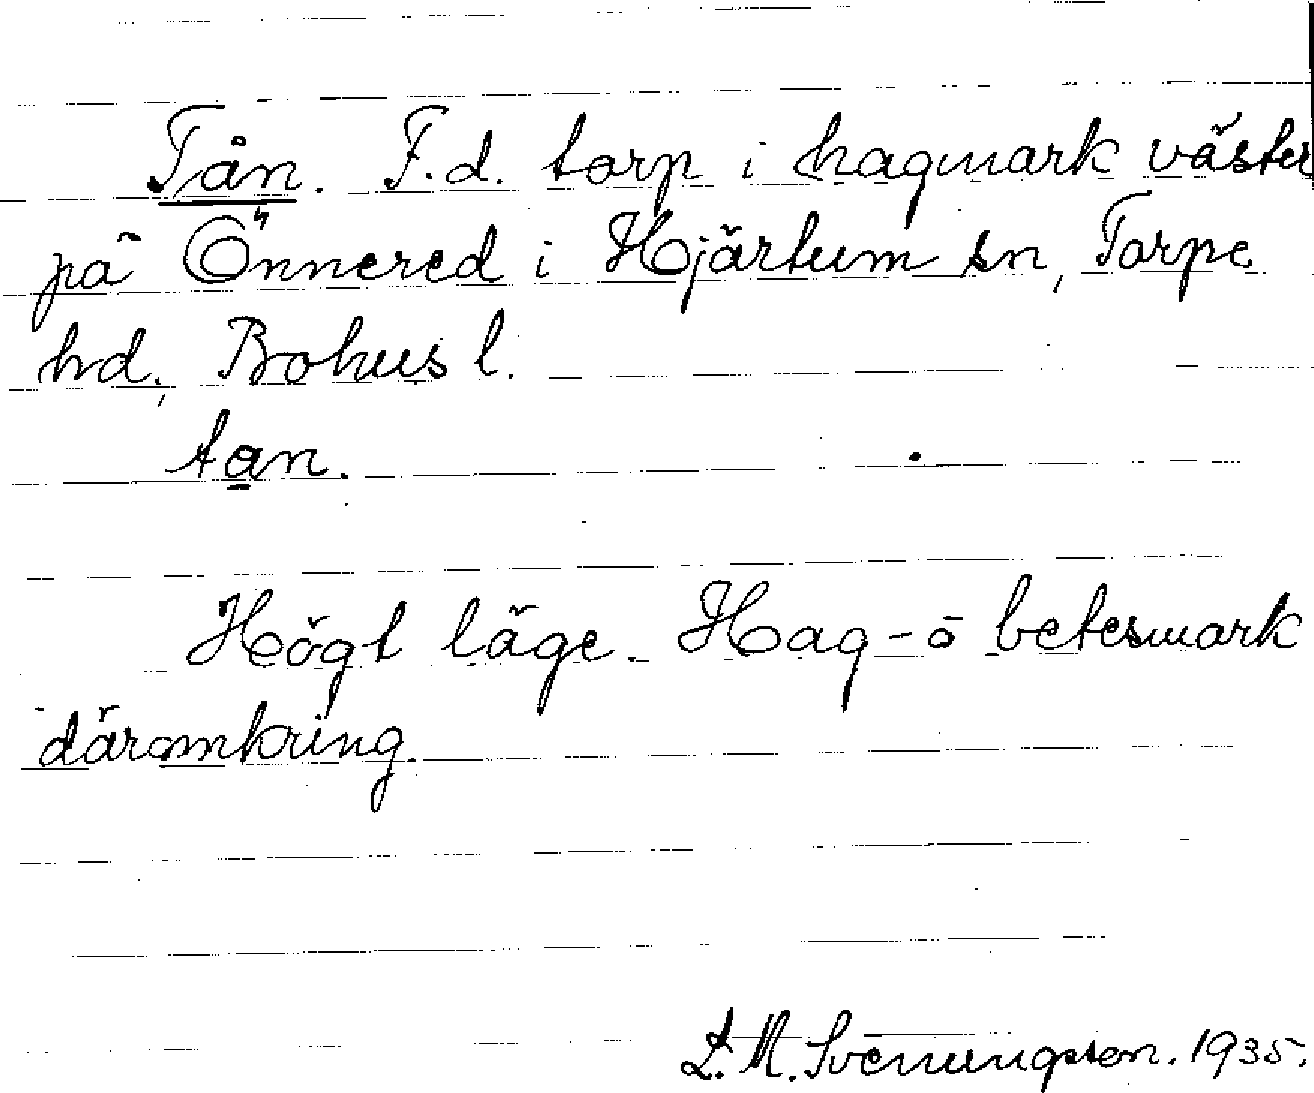 Tån. F.d. torp i hagmark väster
på Önnered i Hjärtum sn, Torpe
hd., Bohus l.
tan.
Högt läge. Hag- o betesmark
däromkring.
L. M. Svenungsson. 1935.